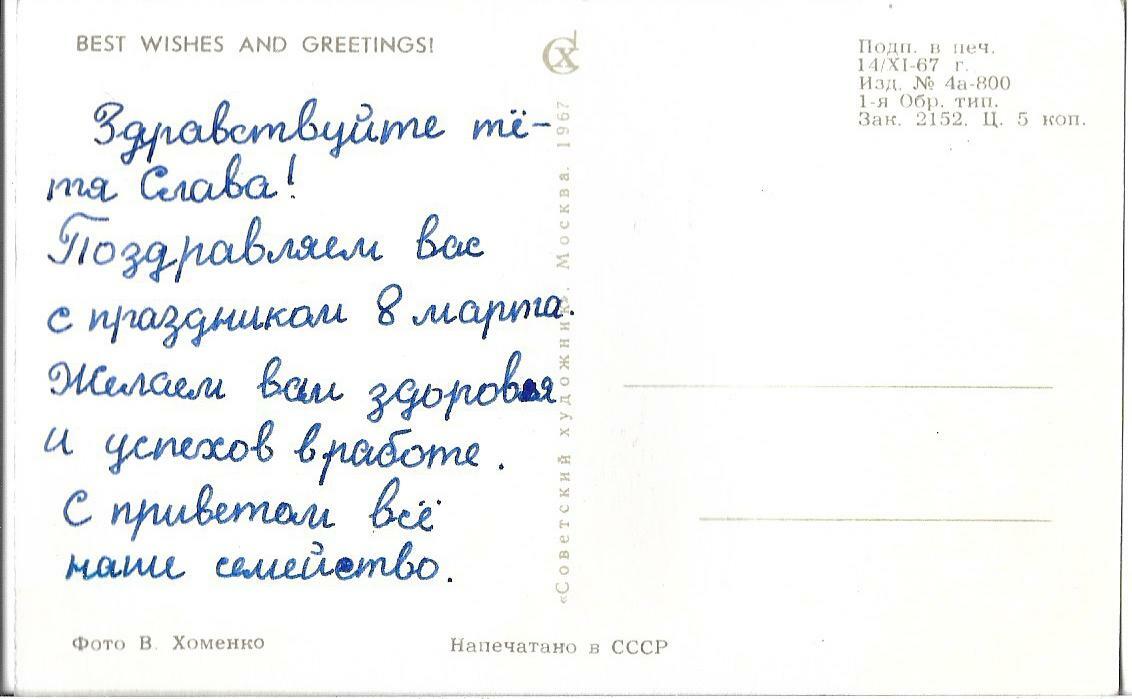 BEST WISHES AND GREETINGS!
Здравствуйте тё-
тя Слава!
Поздравляем вас
с праздником 8 марта.
Желаем вам здоровья
и успехов в работе.
С приветом всё
наше семейство.
Фото В. Хоменко
«Советский художник». Москва. 1967
Напечатано в СССР
СХ
Подп. в печ.
14/XI-67 г.
Изд. № 4а-800
1-я Обр. тип.
Зак. 2152. Ц. 5 коп.